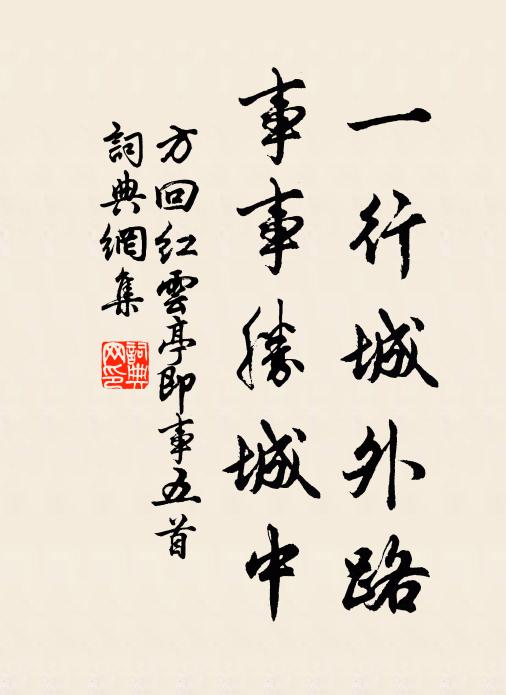 一行城外路
事事勝城中
方回紅雲亭即事五首
詞典網集
詞典
网印